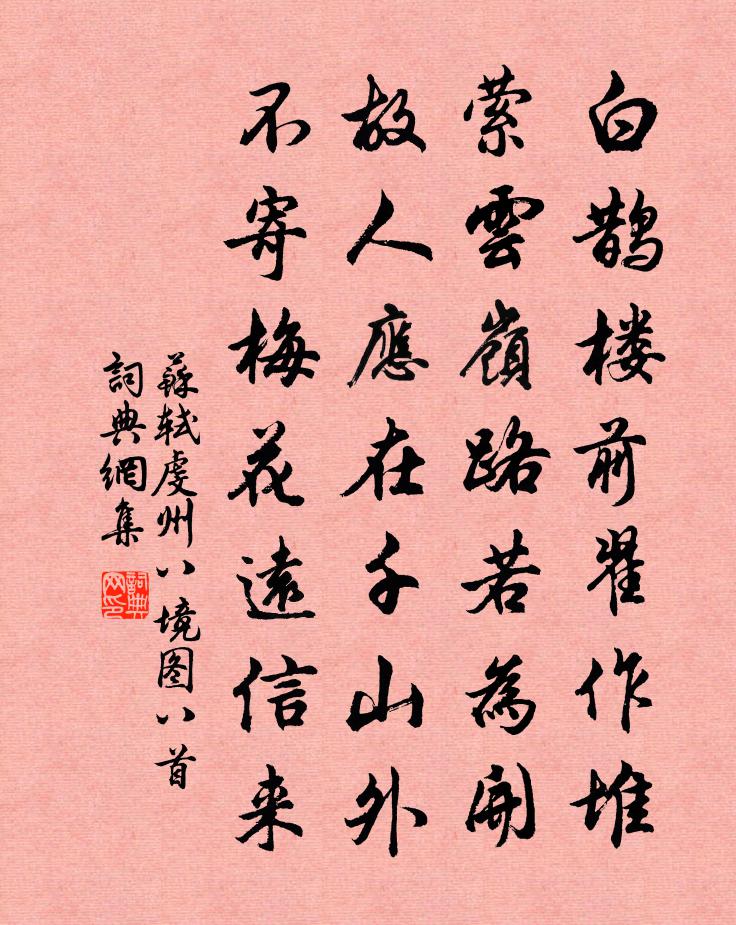 白鹊楼前翠作堆
萦雲嶺路若為開
故人應在千山外
不寄梅花遠信来
蘇軾虔州八境图八首
詞典網集
詞典网印